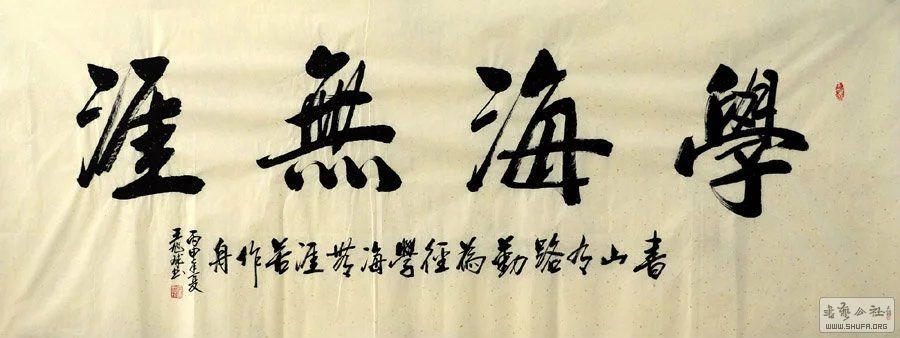 學海無涯
書山有路勤為徑學海無涯苦作舟
丙申年夏
書藝公社
WWW.SHUFA.ORG